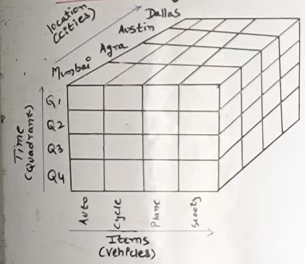 location
(cities)
Dallas
Austin
Agra
Mumbai
Q1
Q2
Q3
Q4
Time
(Quadrant)
Auto
Cycle
Plane
Scooty
Items
(Vehicles)